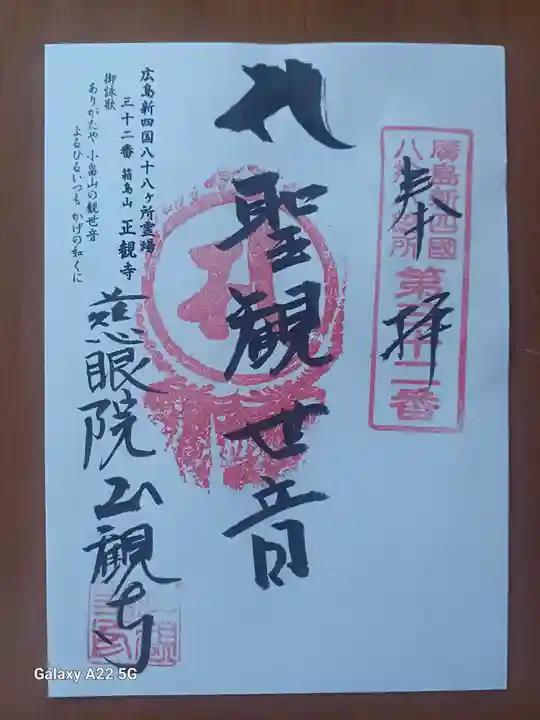 奉拝
廣島新四國
八十八ヶ所
第三十二番
聖観世音
広島新四国八十八ヶ所霊場
三十二番 箱島山 正観寺
御詠歌
ありがたや 小畠山の観世音
よるひるいつも かげの如くに
慈眼院正観寺
Galaxy A22 5G